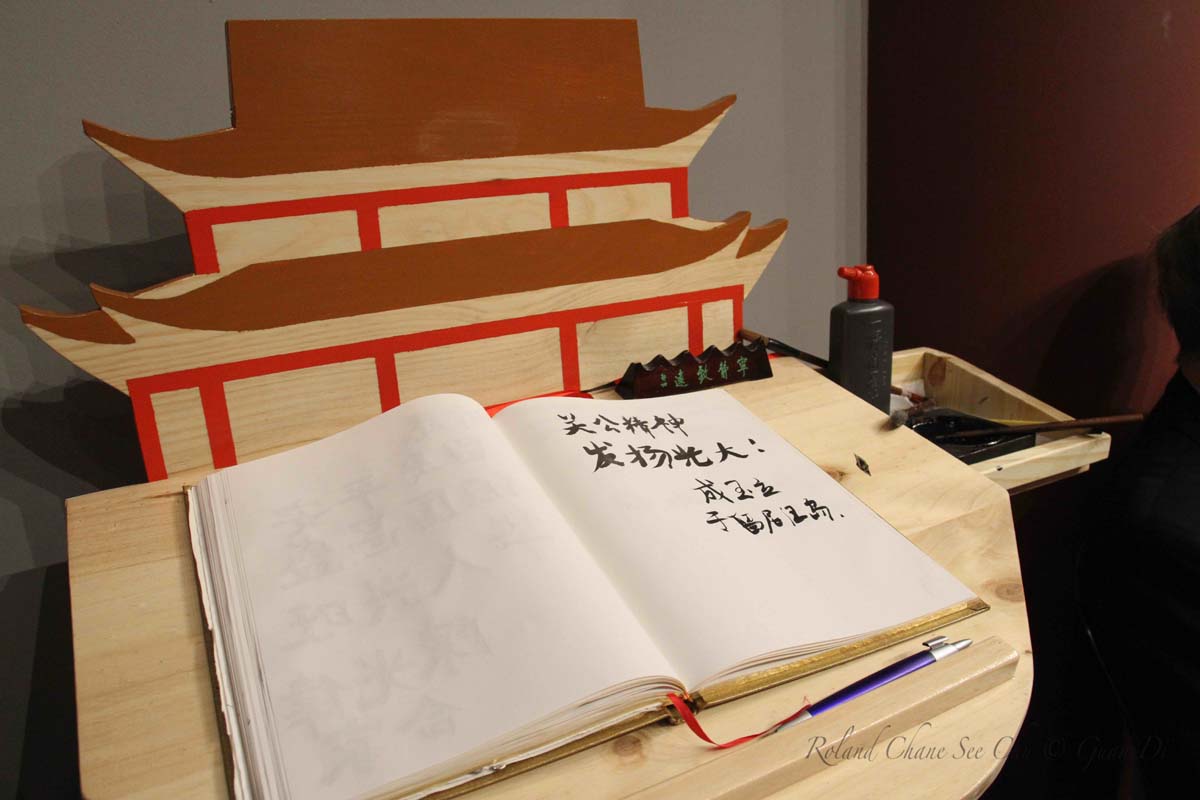 寧靜致遠
关公精神
发扬光大!
成玉立
于留尼汪岛.
Roland Chane See Chu © Guan Di